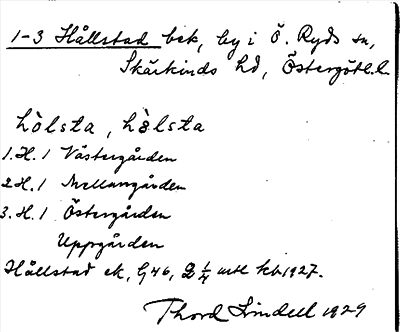 1-3 Hållstad bek, by i Ö. Ryds sn,
Skärkinds hd, Östergötl. l.
hòlsta, hòlsta
1. H. 1 Västergården
2 H. 1 Mellangården
3. H. 1 Östergården
Uppgården
Hållstad ek, G46, 2 1/4 mtl kb 1927.
Thord Lindell 1929